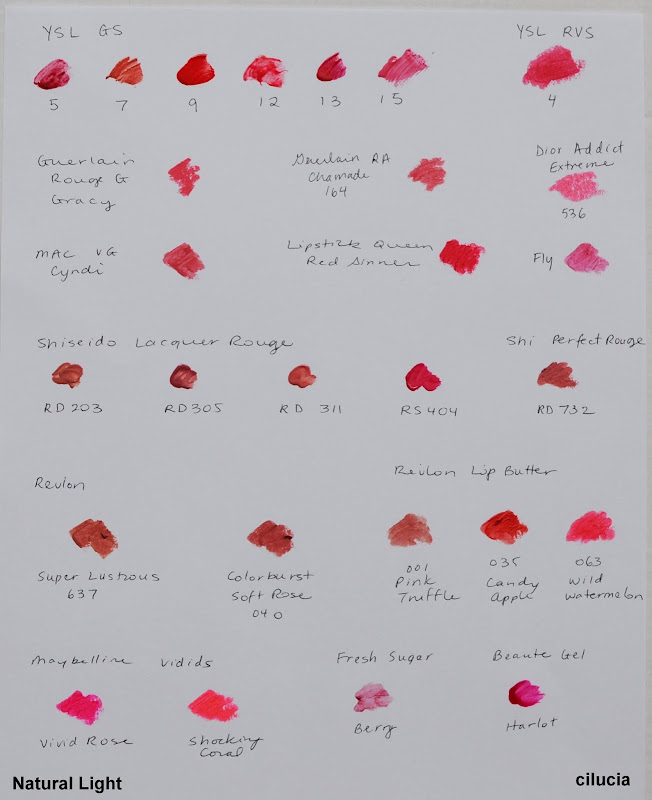 YSL GS
YSL RVS
5 7 9 12 13 15
4
Guerlain
Rouge G
Gracy
Guerlain RA
Chamade
164
Dior Addict
Extreme
536
MAC VG
Cyndi
Lipstick Queen
Red Sinner
Fly
Shiseido Lacquer Rouge
Shi Perfect Rouge
RD 203 RD 305 RD 311 RS 404 RD 732
Revlon
Revlon Lip Butter
Super Lustrous
637
Colorburst
Soft Rose
040
001
Pink
Truffle
035
Candy
Apple
063
Wild
Watermelon
Maybelline Vidids
Fresh Sugar
Beaute Gel
Vivid Rose
Shocking
Coral
Berry
Harlot
Natural Light
cilucia